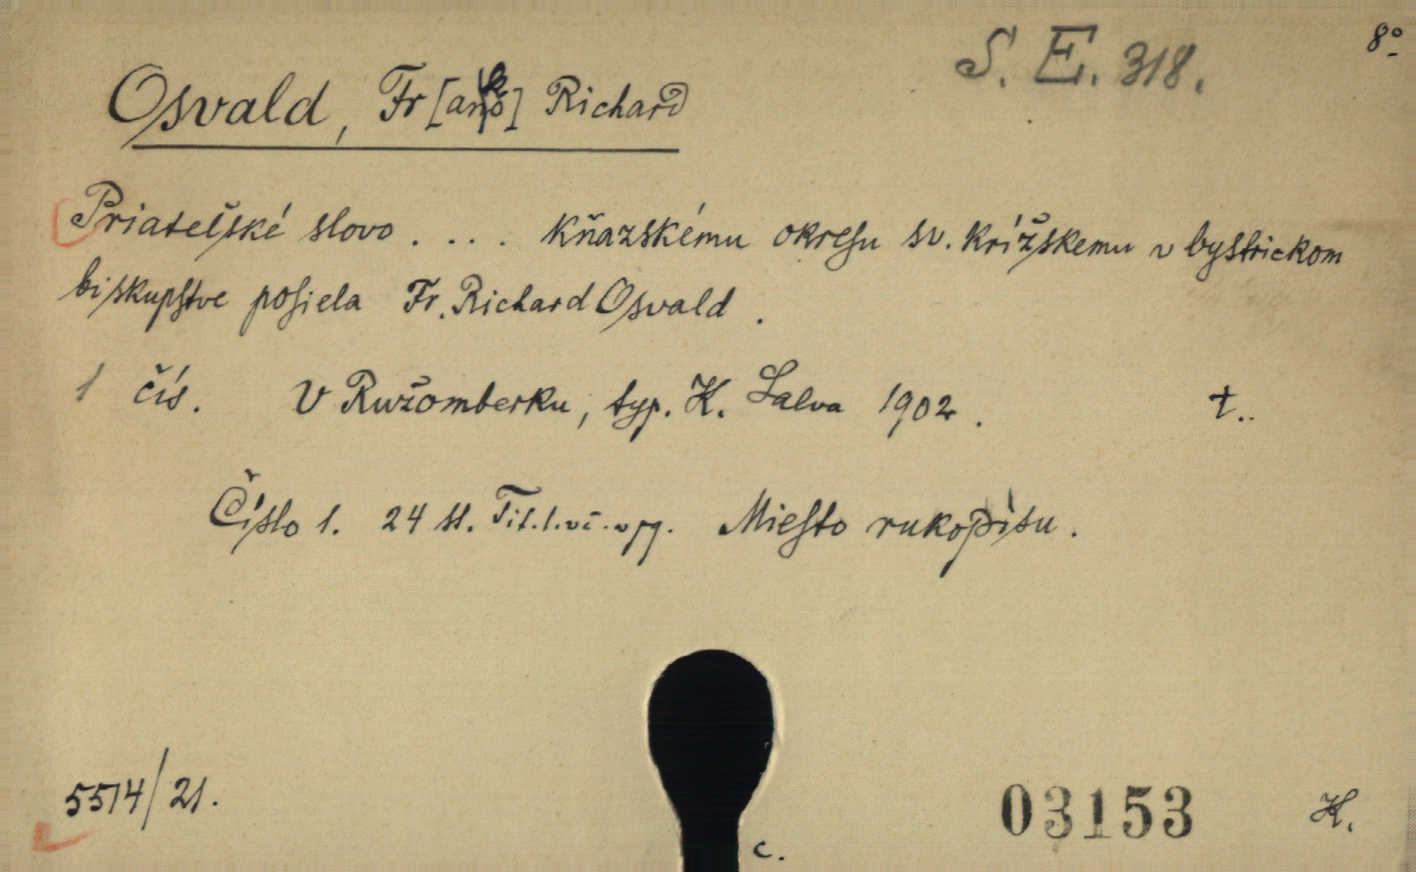 S. E. 318.
8°
Osvald, Fr[ank] Richard
Priateľské slovo . . . . kňazskému okresu sv. krížskemu v bystrickom
biskupstve posiela Fr. Richard Osvald .
1 čís. V Ružomberku, typ. K. Salva 1902 . t..
Číslo 1. 24 st. Tit. l. vč. v pg. Miesto rukopisu .
5514/21.
03153
K.
c.